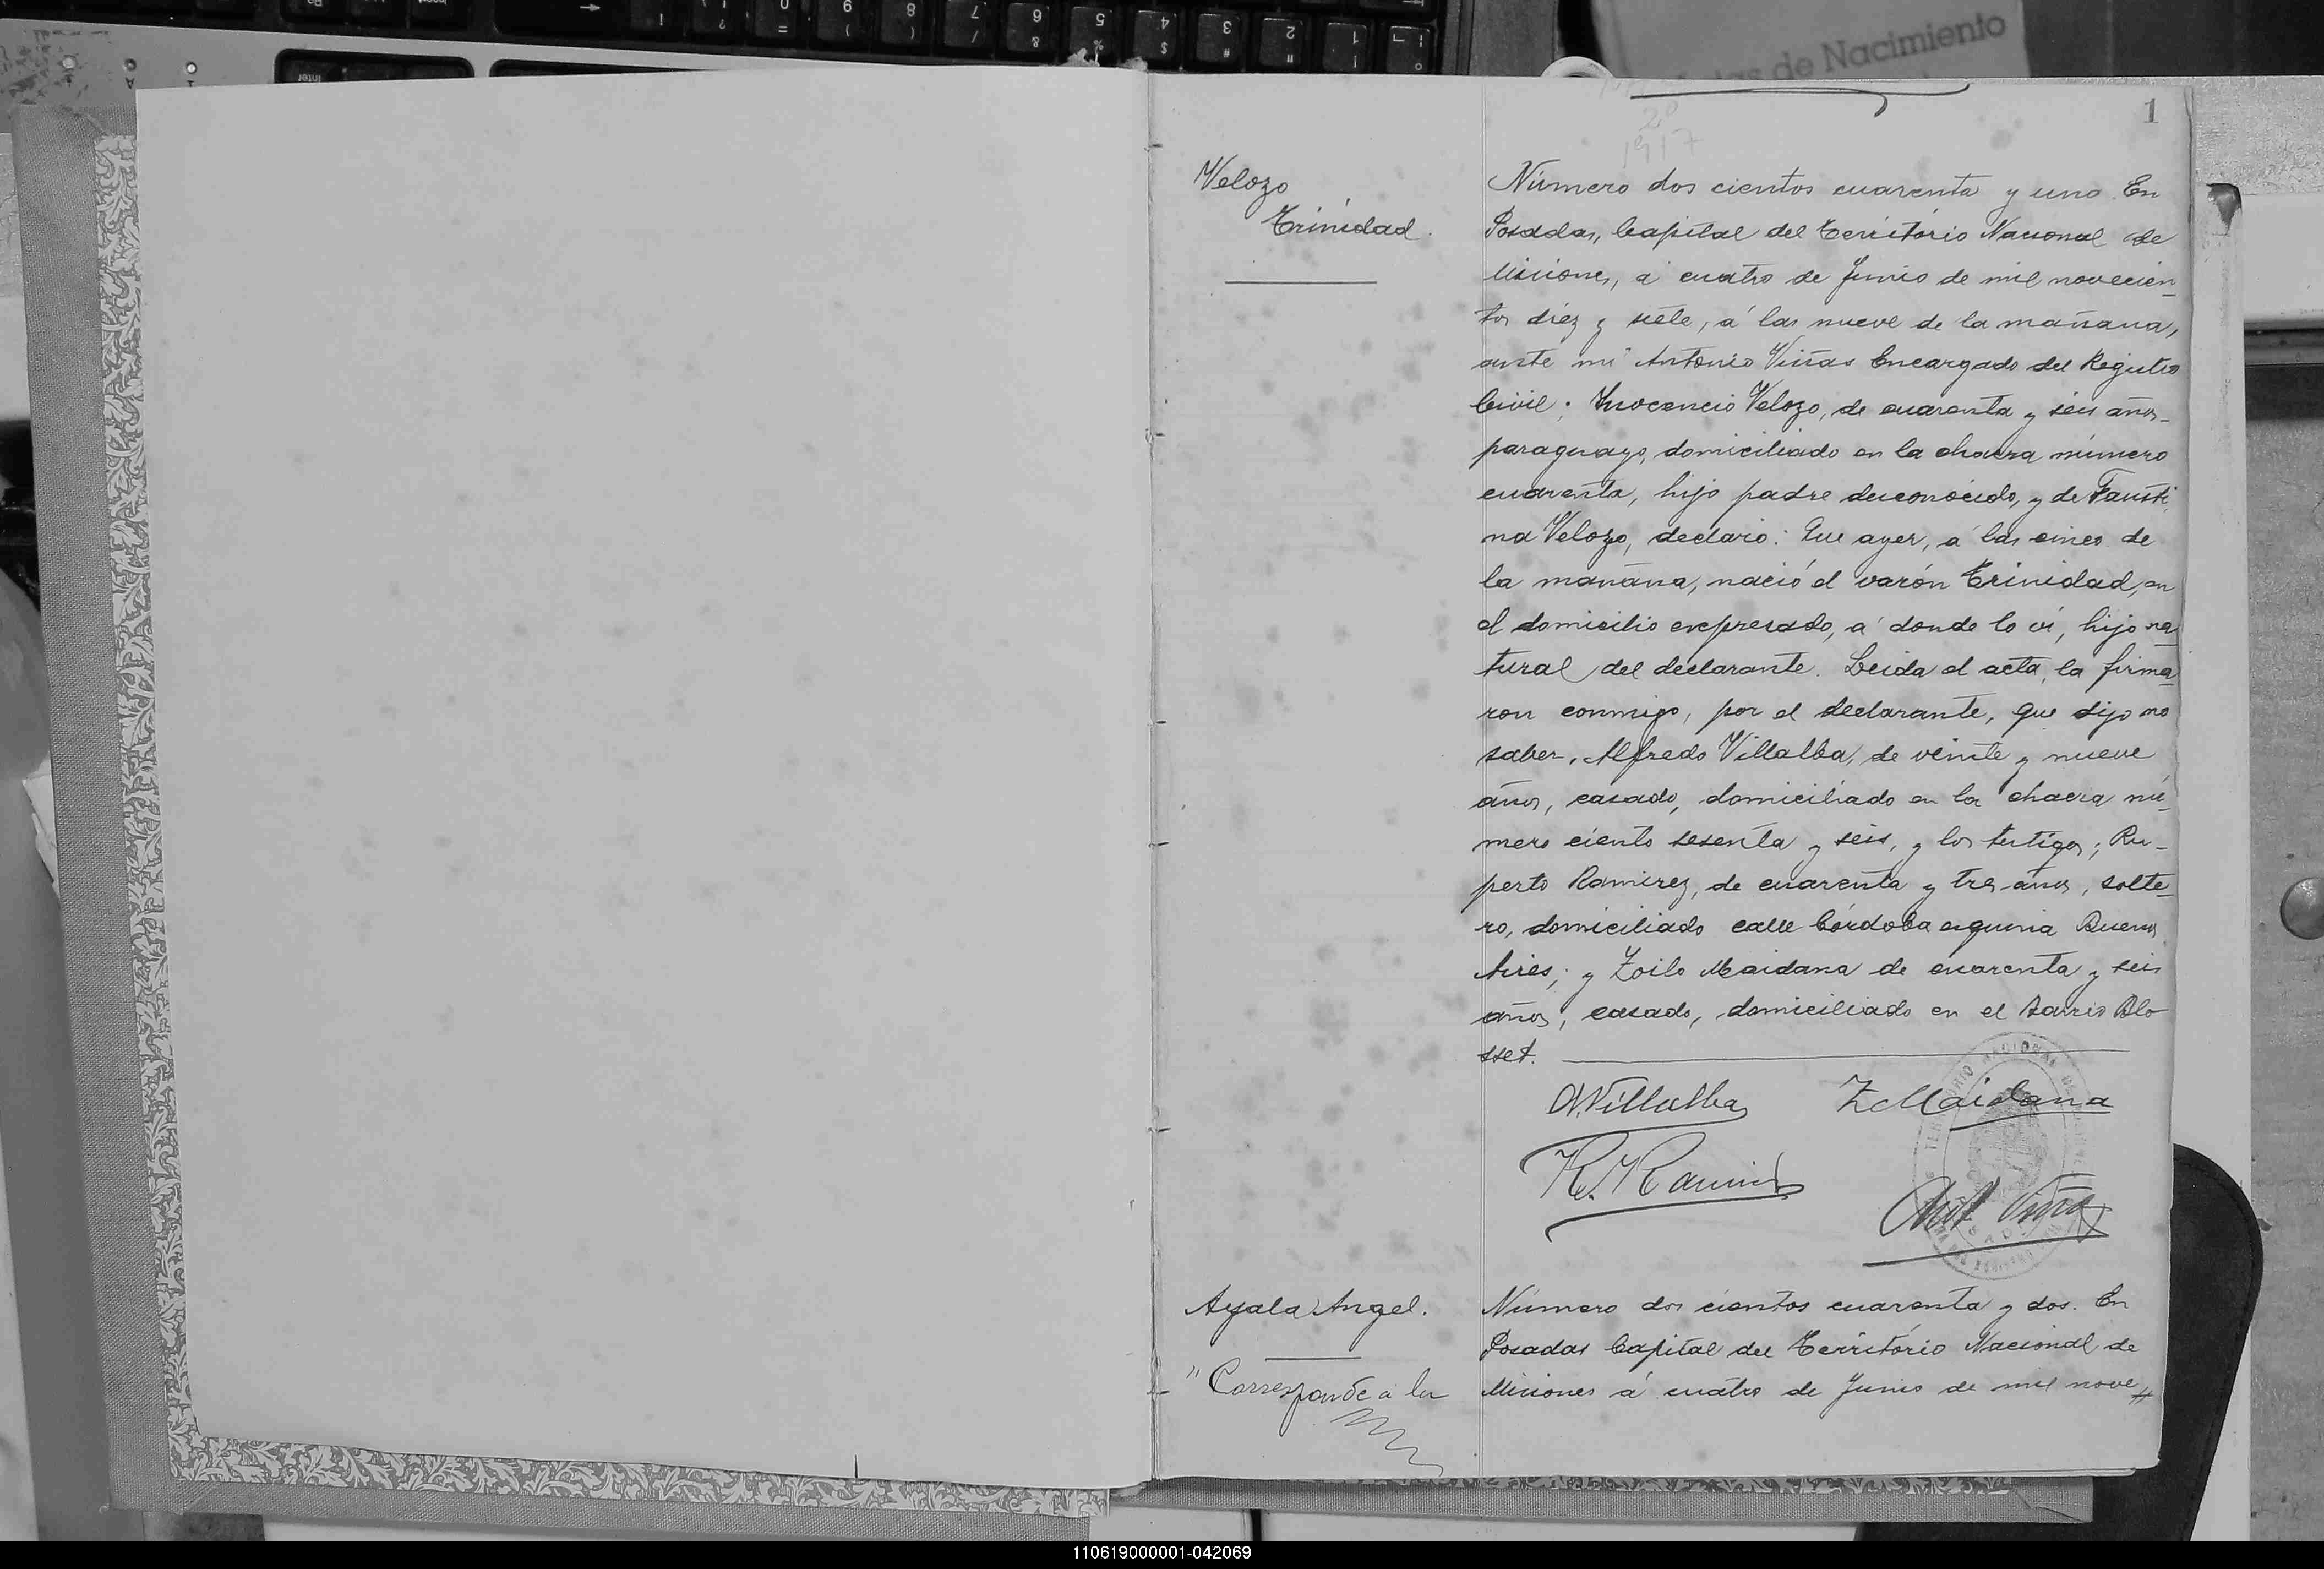 Actas de Nacimiento
1
2º
1917
Velozo
Trinidad.
Número dos cientos cuarenta y uno. En
Posadas, Capital del Território Nacional de
Misiones, á cuatro de Junio de mil novecien_
tos diéz y siete, á las nueve de la mañana,
ante mi Antonio Viñas Encargado del Registro
Civil; Inocencio Velozo, de cuarenta y seis años_
paraguayo, domiciliado en la chacra número
cuarenta, hijo padre desconocido, y de Fausti
na Velozo, declaró: Que ayer, á las cinco de
la mañana, nació el varón Trinidad, en
el domicilio expresado, á donde lo ví, hijo na_
tural del declarante. Leida el acta, la firma_
ron conmigo, por el declarante, que dijo no
saber, Alfredo Villalba, de veinte y nueve
años, casado, domiciliado en la chacra nú_
mero ciento sesenta y seis, y los testigos; Ru_
perto Ramirez, de cuarenta y tres años, solte_
ro, domiciliado calle Córdoba esquina Buenos
Aires; y Zoilo Maidana de cuarenta y seis
años, casado, domiciliado en el barrio Blo
sset.
A. Villalba
Z Maidana
R. Ramirez
Ant Viñas
Ayala Angel.
Número dos cientos cuarenta y dos. En
Posadas Capital del Território Nacional de
Misiones á cuatro de Junio de mil nove
" Corresponde a la
110619000001-042069